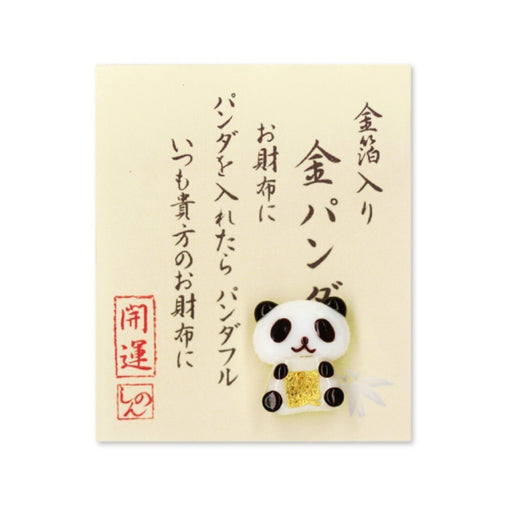 金箔入り
金パンダ
お財布に
パンダを入れたら パンダフル
いつも貴方のお財布に
開運
しんの